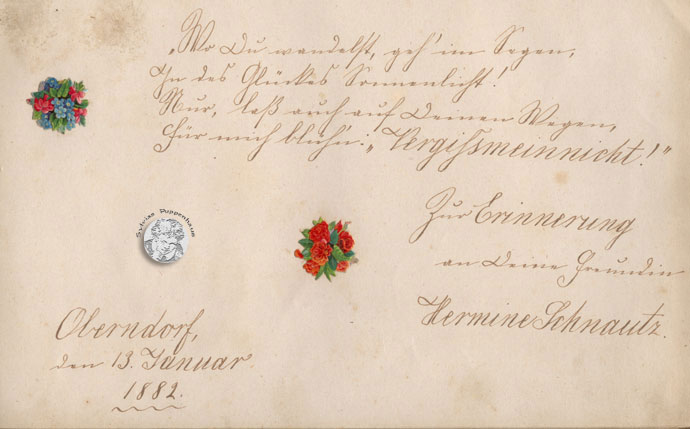 „Wo Du wandelst, geh' im Segen,
In des Glückes Sonnenlicht!
Nur, laß auch auf Deinen Wegen,
Für mich blüh'n: „Vergissmeinnicht!"
Zur Erinnerung
an Deine Freundin
Hermine Schnautz.
Oberndorf,
den 13. Januar
1882.
Sylvias Puppenhaus